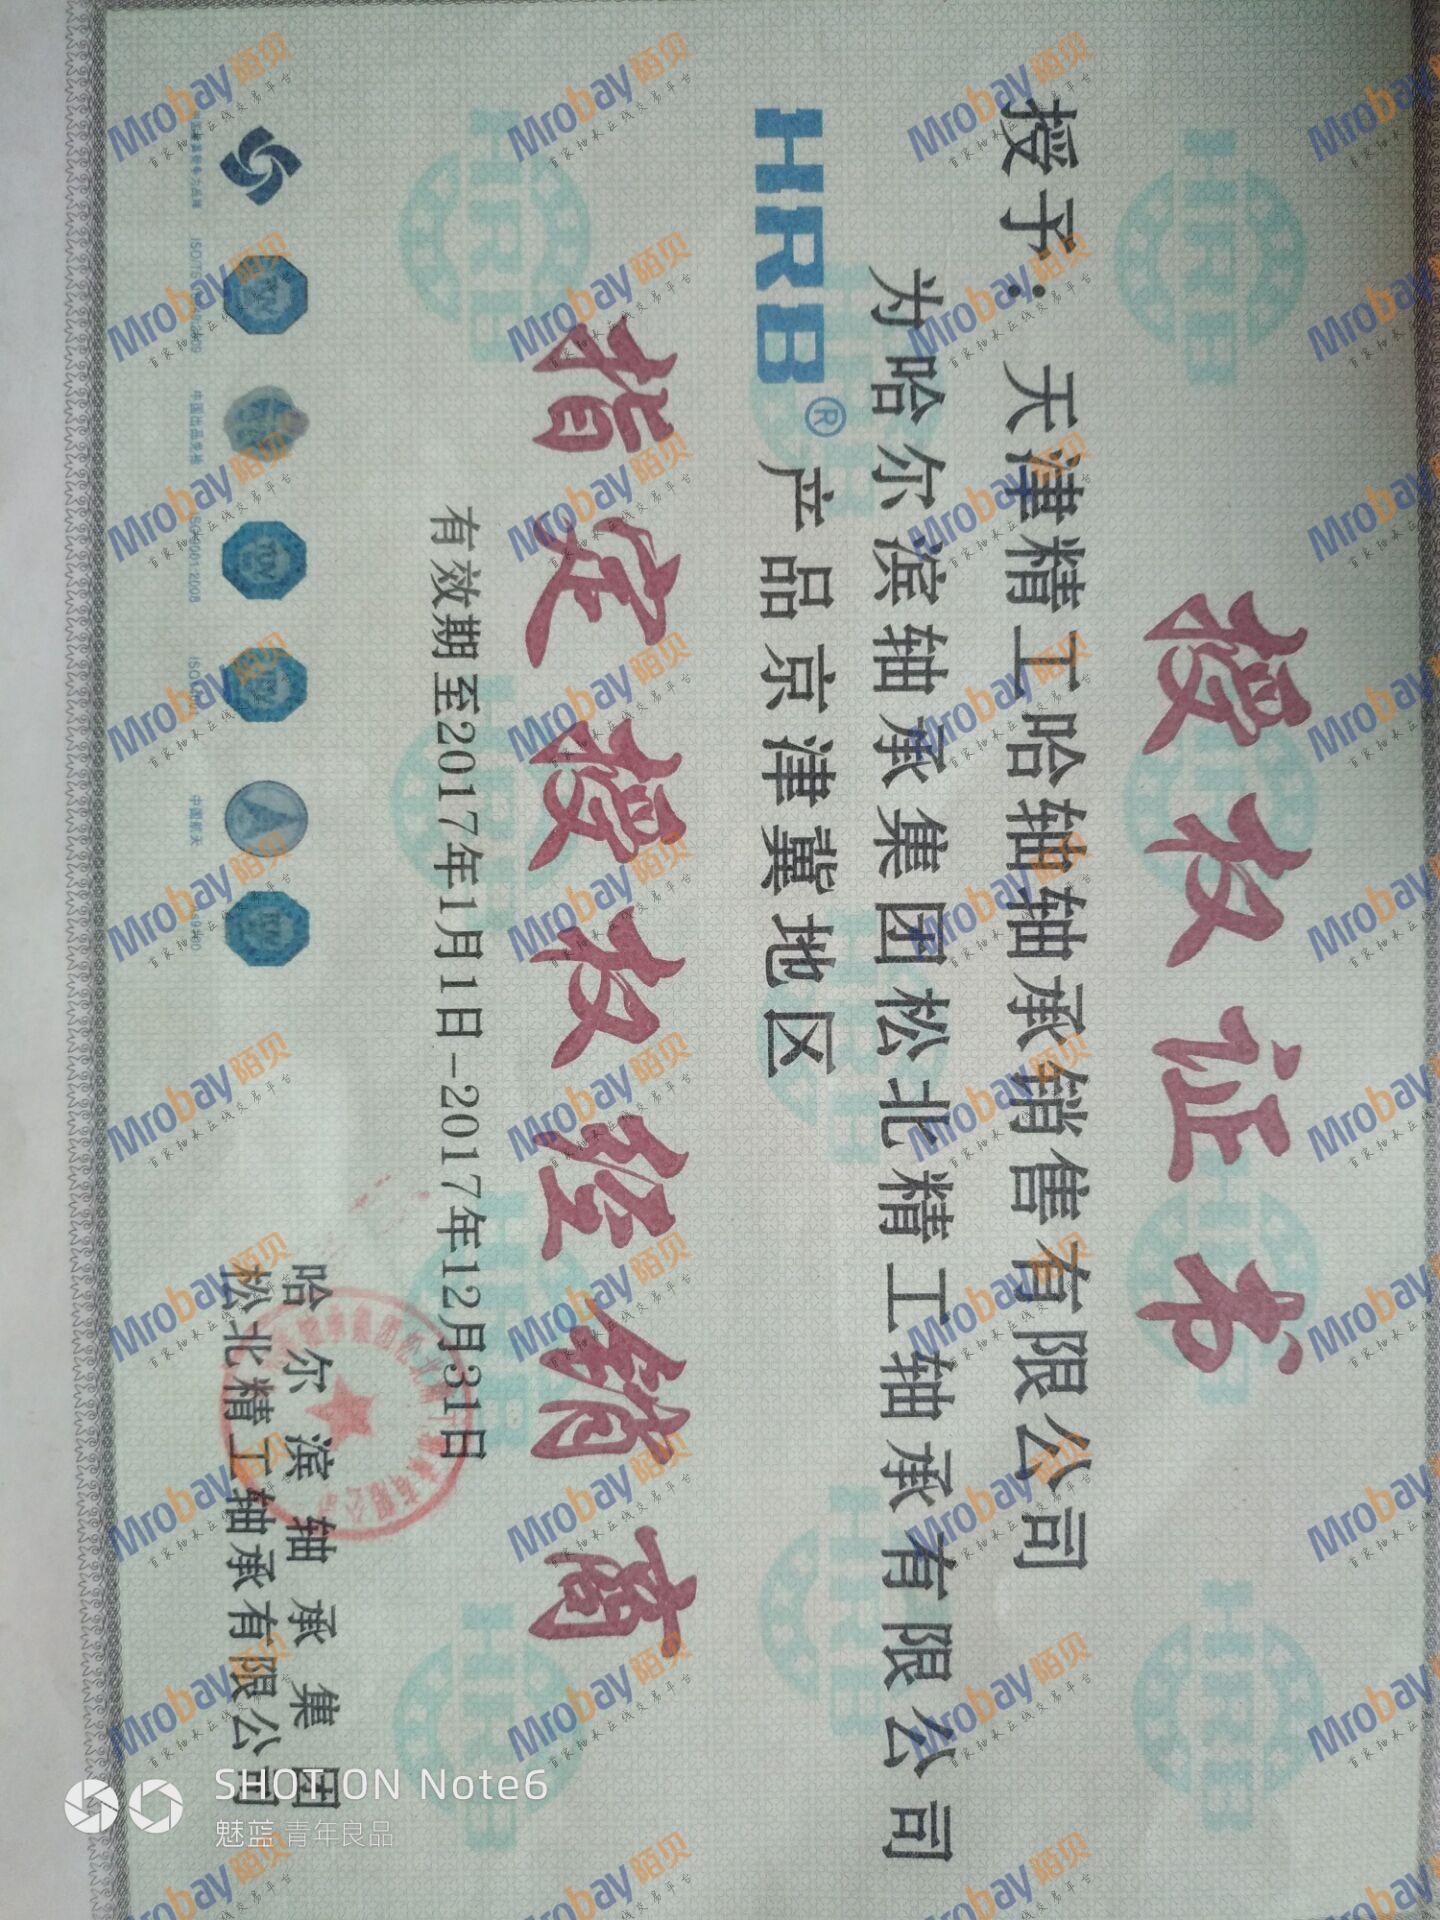 授权证书
授予：天津精工哈轴轴承销售有限公司
为哈尔滨轴承集团松北精工轴承有限公司
HRB® 产品京津冀地区
指定授权经销商
有效期至2017年1月1日-2017年12月31日
哈尔滨轴承集团
松北精工轴承有限公司
中国航天
SHOT ON Note6
魅蓝 青年良品
Mrobay陌贝
首家轴承在线交易平台